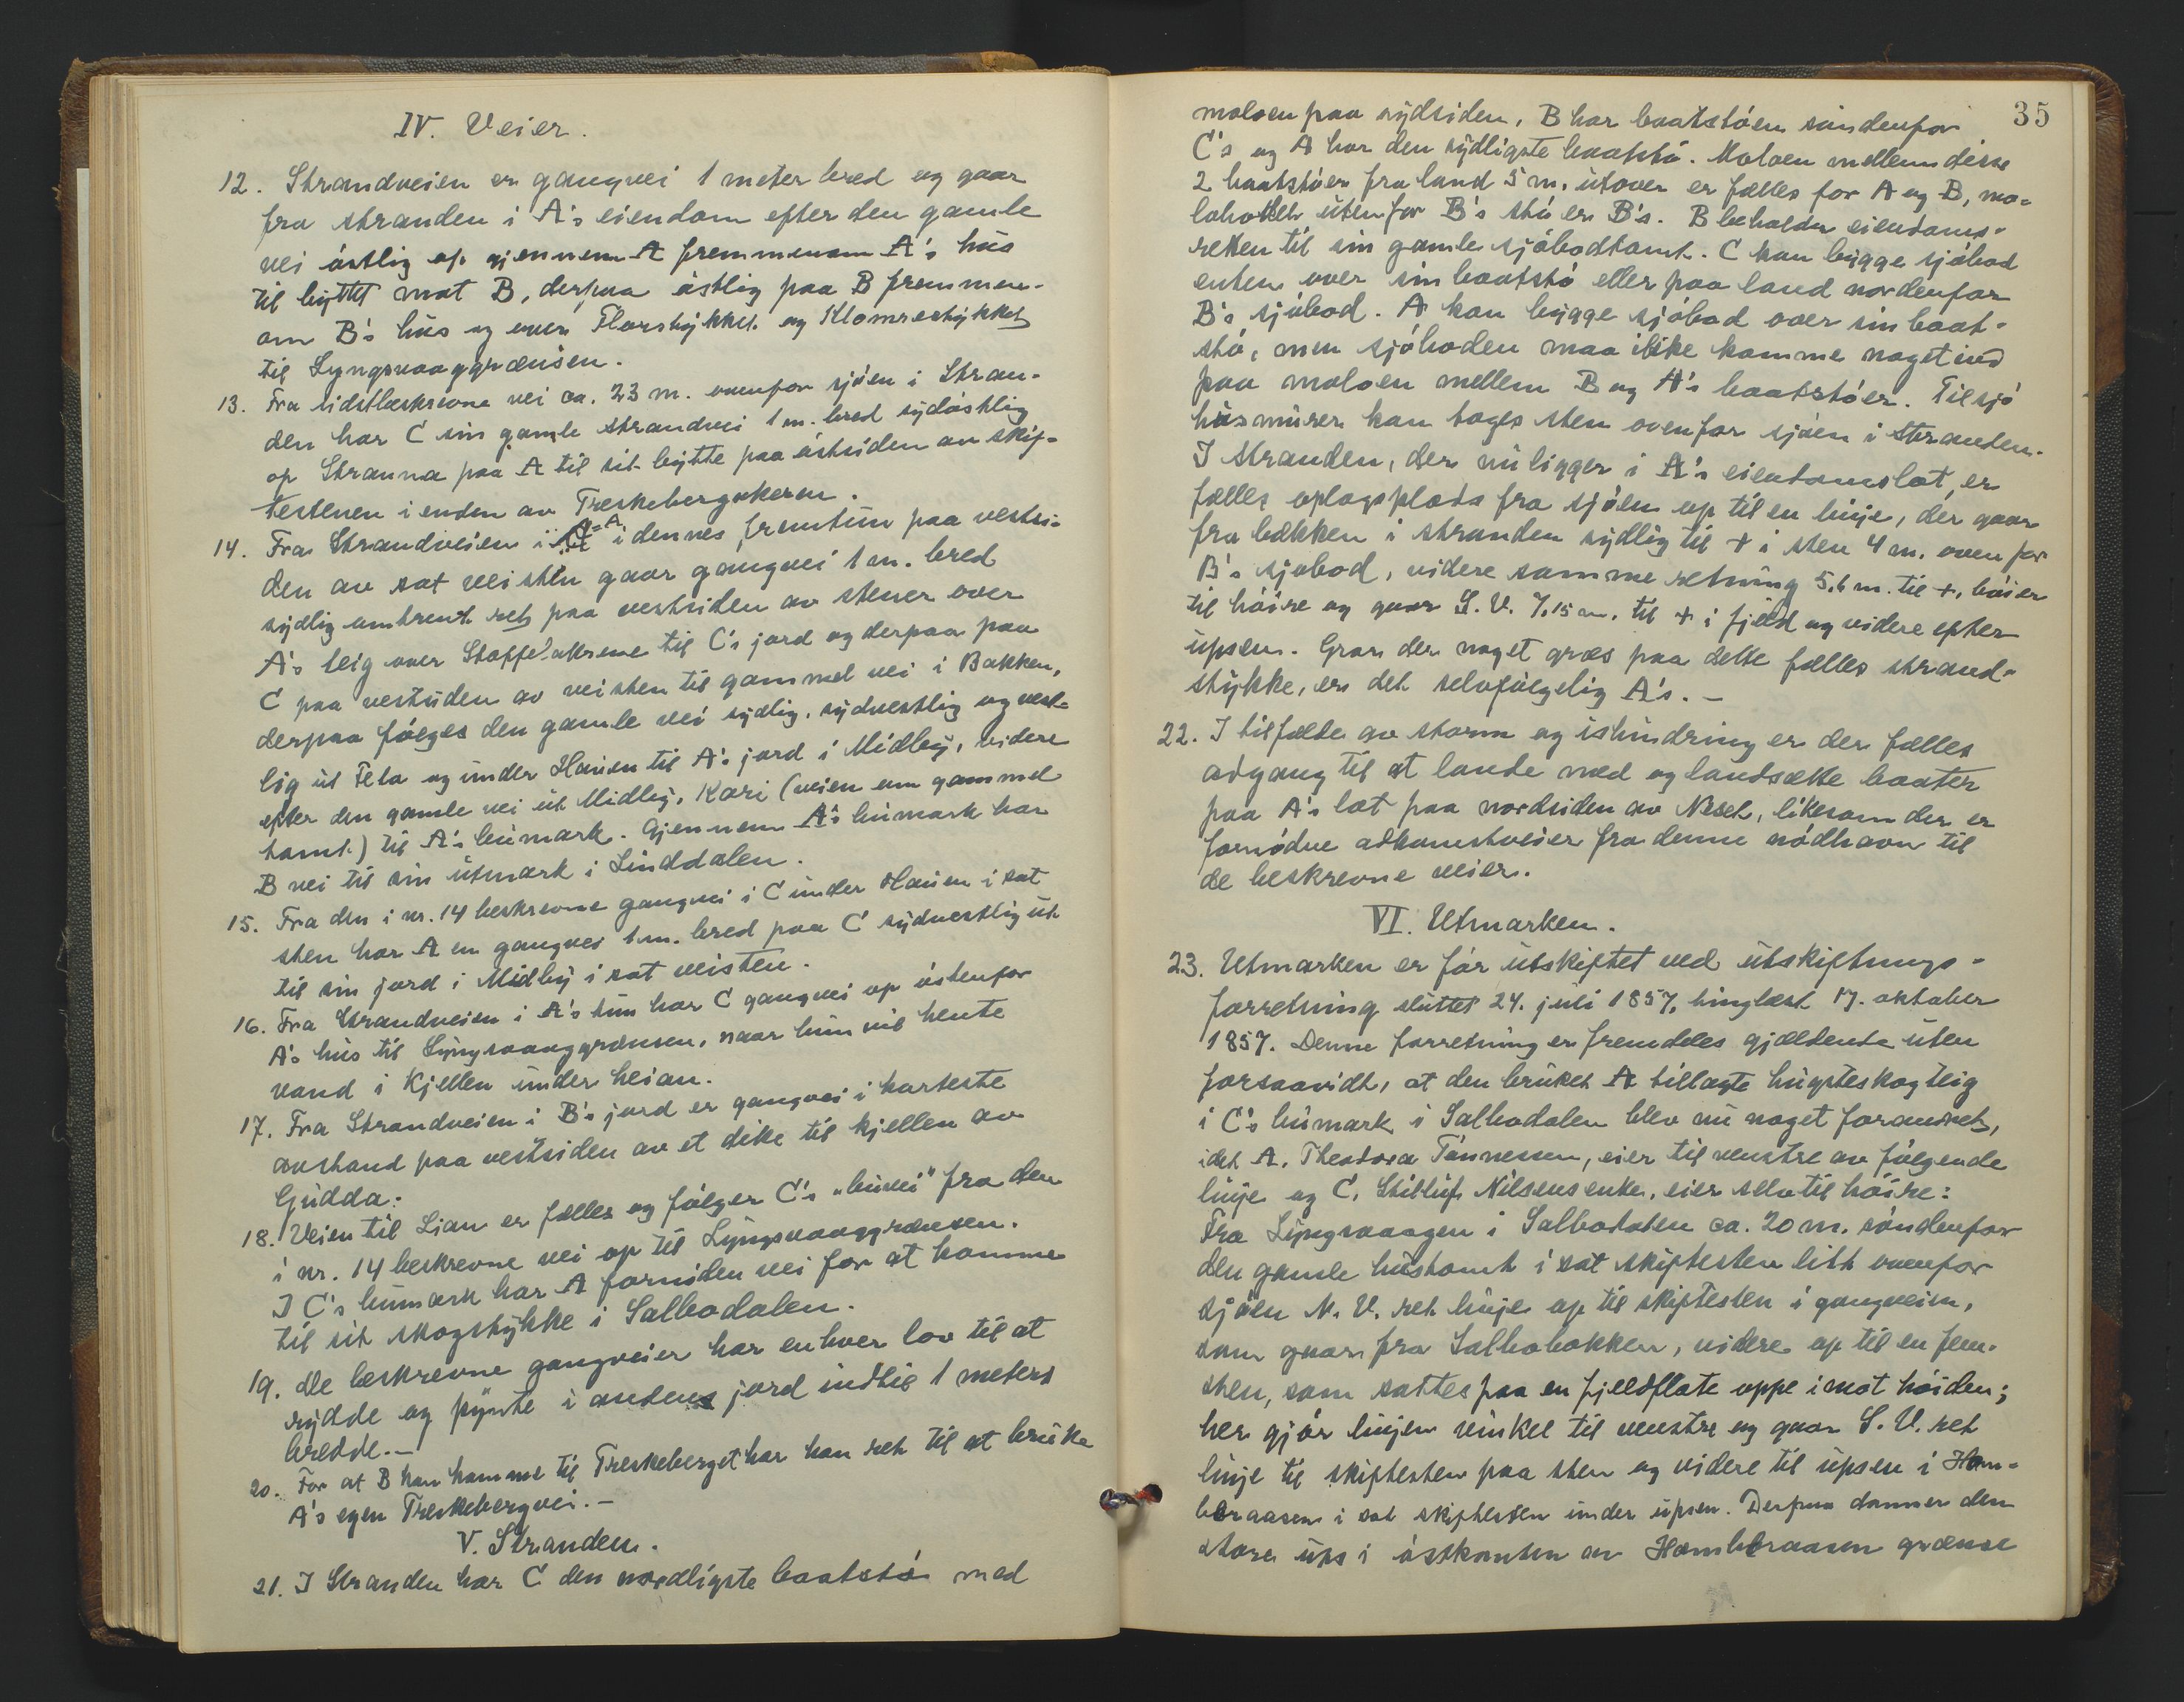 IV. Veier.
12. Strandveien er gangvei 1 meter bred og gaar
fra stranden i A's eiendom efter den gamle
vei östlig op gjennem A fremmenom A's hus
til byttet mot B, derpaa östlig paa B fremmen-
om B's hus og over Florstykket og Klomrestykket
til Lyngsvaaggrænsen.
13. Fra sidstbeskrevne vei ca. 23 m. ovenfor sjöen i Stran-
den har C sin gamle strandvei 1 m. bred sydöstlig
op Stranna paa A til sit bytte paa östsiden av skif-
testenen i enden av Treskebergakeren.
14. Fra Strandveien i A i dennes fremtun paa vestsi-
den av sat veisten gaar gangvei 1 m. bred
sydlig omtrent ret paa vestsiden av stener over
A's teig over Stoffelakrene til C's jord og derpaa paa
C paa vestsiden av veisten til gammel vei i Bakken,
derpaa fölges den gamle vei sydlig, sydvestlig og vest-
lig ut Fela og under Hauen til A's jord i Midby, videre
efter den gamle vei ut Midby, Kari (veien om gammel
tomt.) til A's bumark. Gjennem A's bumark har
B vei til sin utmark i Linddalen.
15. Fra den i nr. 14 beskrevne gangvei i C under Hauen i sat
sten har A en gangvei 1 m. bred paa C sydvestlig ut
til sin jord i Midby i sat veisten.
16. Fra Strandveien i A's tun har C gangvei op östenfor
A's hus til Lyngsvaaggrænsen, naar hun vil hente
vand i Kjellen under heian.
17. Fra Strandveien i B's jord er gangvei i korteste
avstand paa vestsiden av et dike til kjellen av
Gudda.
18. Veien til Lian er fælles og fölger C's „buvei" fra den
i nr. 14 beskrevne vei op til Lyngsvaaggrænsen.
I C's bumark har A fornöden vei for at komme
til sit skogstykke i Salbodalen.
19. De beskrevne gangveier har enhver lov til at
rydde og pynte i andens jord indtil 1 meters
bredde.-
20. For at B kan komme til Treskeberget har han ret til at bruke
A's egen Treskebergvei.-
V. Stranden.
21. I Stranden har C den nordligste baatstö med
35
moloen paa sydsiden. B har baatstöen söndenfor
C's og A har den sydligste baatstö. Moloen mellem disse
2 baatstöer fra land 5 m. utover er fælles for A og B, mo-
lohodet utenfor B's stö er B's. B beholder eiendoms-
retten til sin gamle sjöbodtomt. C kan bygge sjöbod
enten over sin baatstö eller paa land nordenfor
B's sjöbod. A kan bygge sjöbod over sin baat-
stö, men sjöboden maa ikke komme noget ind
paa moloen mellem B og A's baatstöer. Til sjö
husmurer kan tages sten ovenfor sjöen i Stranden.
I Stranden, der nu ligger i A's eiendomslot, er
fælles oplagsplads fra sjöen op til en linje, der gaar
fra bækken i stranden sydlig til + i sten 4 m. ovenfor
B's sjöbod, videre samme retning 5,6 m. til +, böier
til höire og gaar S. V. 7,15 m. til + i fjeld og videre efter
upsen. Gror der noget græs paa dette fælles strand-
stykke, er det selvfölgelig A's.-
22. I tilfælde av storm og ishindring er der fælles
adgang til at lande med og landsætte baater
paa A's lot paa nordsiden av Neset, likesom der er
fornödne adkomstveier fra denne nödhavn til
de beskrevne veier.
VI. Utmarken.
23. Utmarken er för utskiftet ved utskiftnings-
forretning sluttet 24. juli 1857, tinglæst 17. oktober
1857. Denne forretning er fremdeles gjældende uten
forsaavidt, at den bruket A tillagte hugsteskogteig
i C's bumark i Salbodalen blev nu noget forandret,
idet A. Theodora Tönnessen, eier til venstre av fölgende
linje og C, Stilluf Nilsens enke, eier selv til höire:
Fra Lyngsvaagen i Salbodalen ca. 20 m. söndenfor
den gamle hustomt i sat skiftesten litt ovenfor
sjöen N. V. ret linje op til skiftesten i gangveien,
som gaar fra Salbobakken, videre op til en fem-
sten, som sattes paa en fjeldflate oppe imot höiden;
her gjör linjen vinkel til venstre og gaar S. V. ret
linje til skiftesten paa sten og videre til upsen i Ham-
beraasen i sat skiftesten under upsen. Derpaa danner den
store ups i östkanten av Hamberaasen grænse